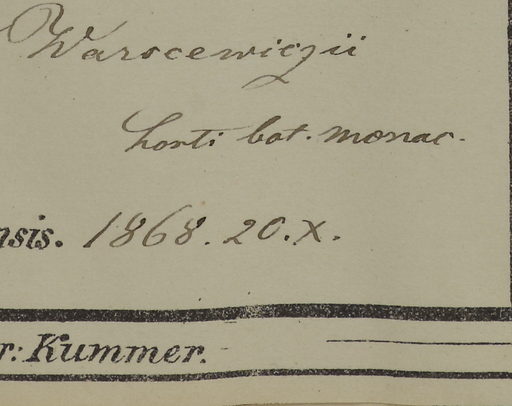 Warocewiczii
horti bot. monac.
nsis. 1868. 20. X.
r: Kummer.